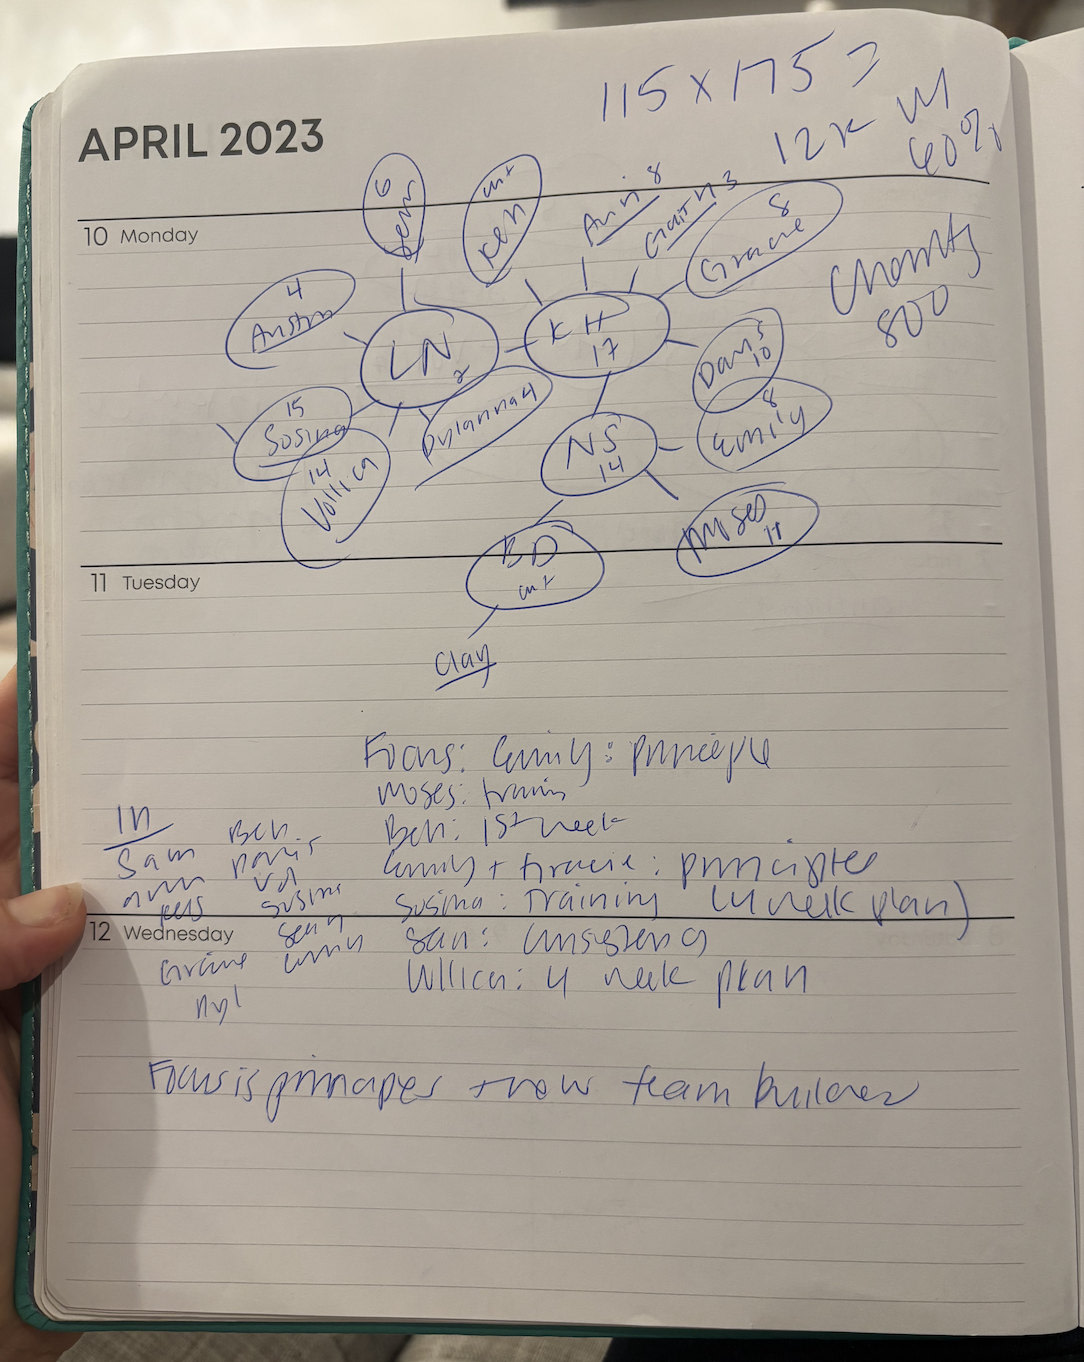 115 x 175 =
APRIL 2023
12k
60%
10 Monday
6
Ken
Ann 8
3
8
Gracie
Charity
800
4
Austin
LN
2
KH
17
Davis
10
15
Susina
Dylanna 4
8
Emily
14
NS
14
Moses
11
BD
11 Tuesday
Clay
Focus: Emily: principle
Moses: train
In
Ben
Ben: 1st week
Sam
Davis
Emily + Gracie: principles
Susina
Susina: Training (4 week plan)
12 Wednesday
Sean
Sean: consistency
Gracie
Emily
4 week plan
Dyl
Focus is principles + new team builder